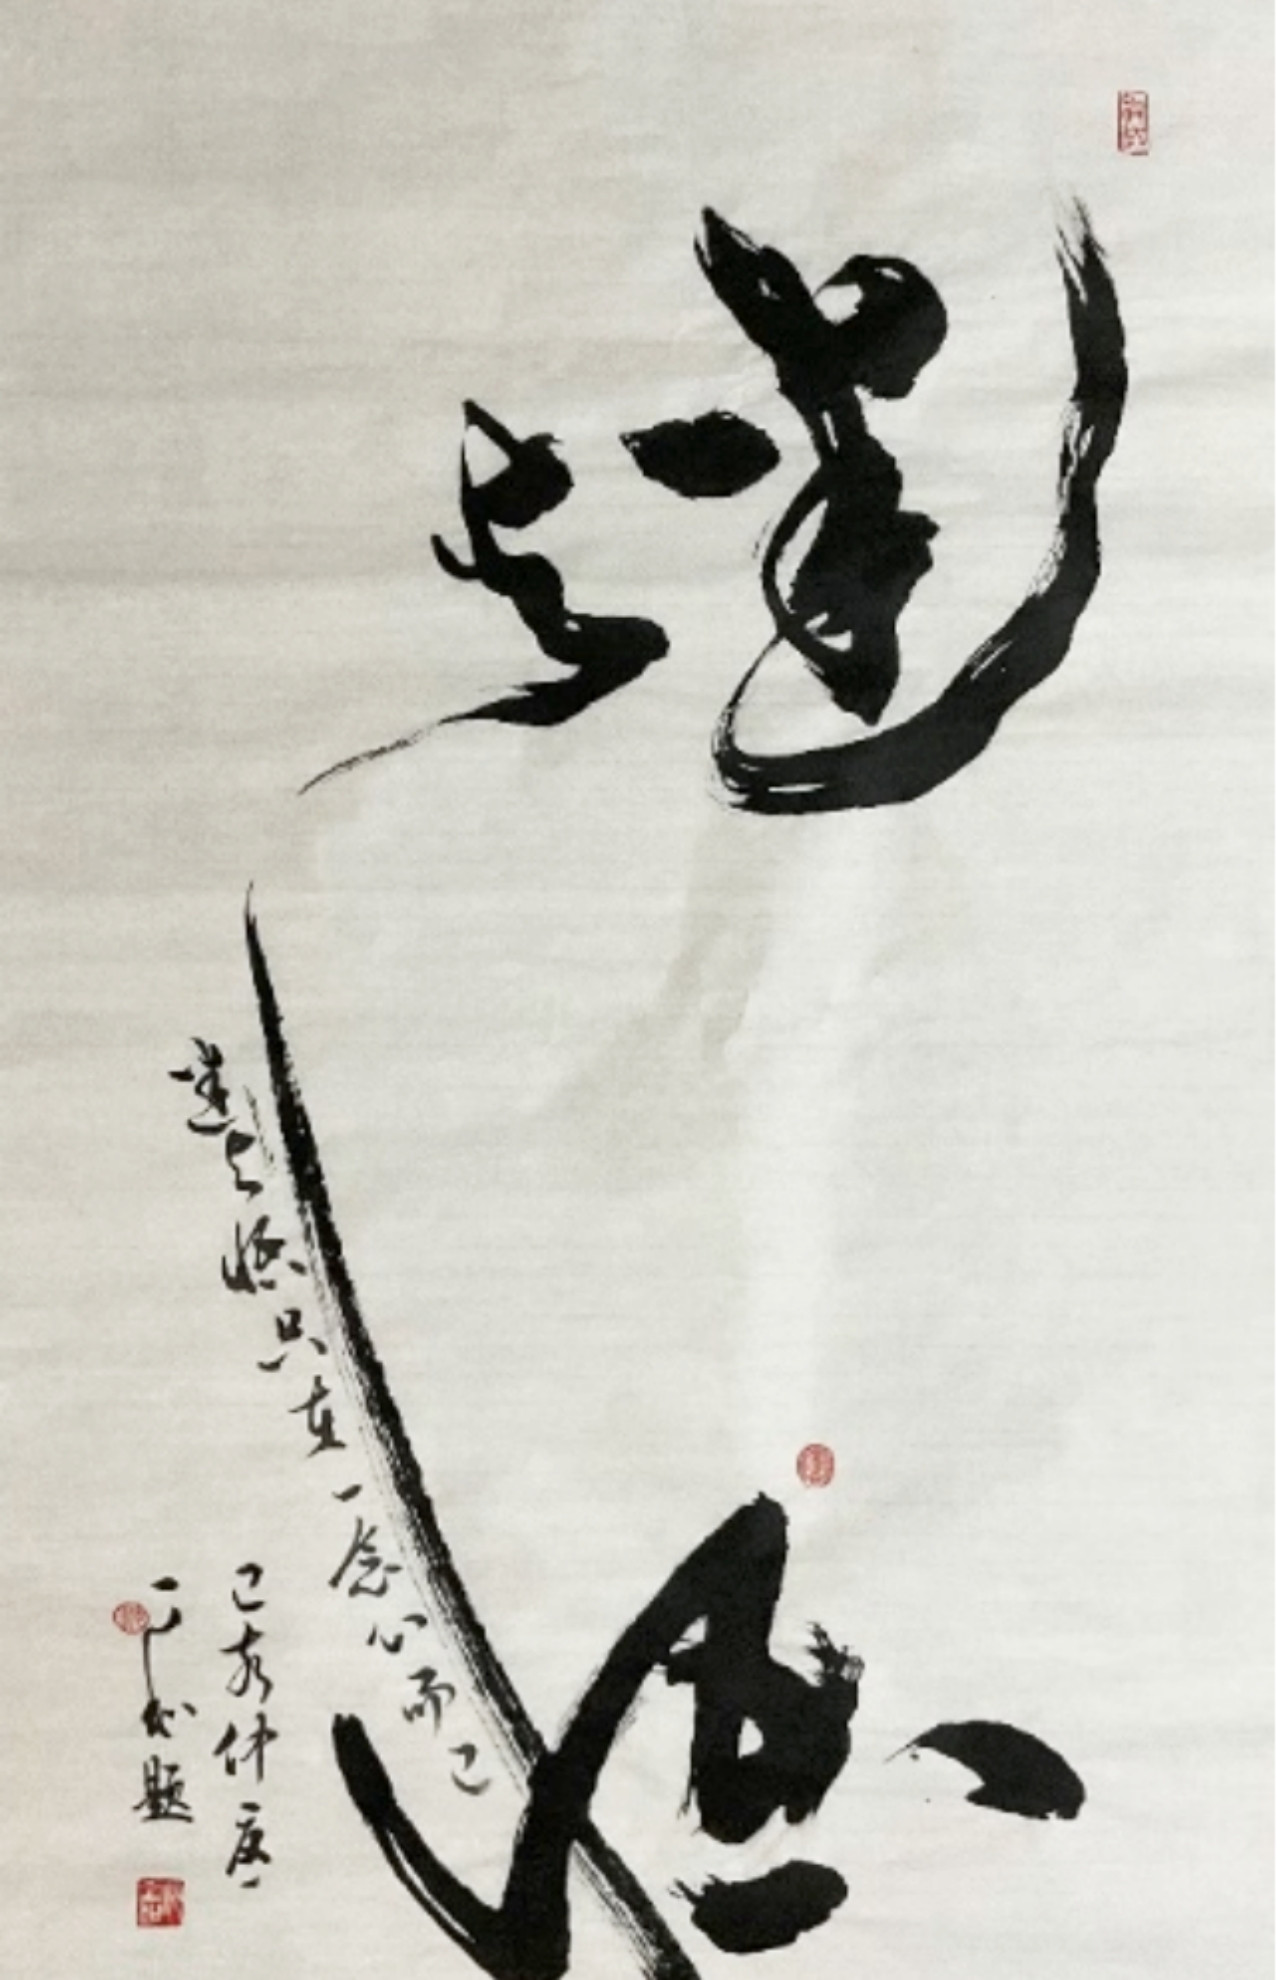 迷
与
悟
迷与悟只在一念心而已
己亥仲夏
題